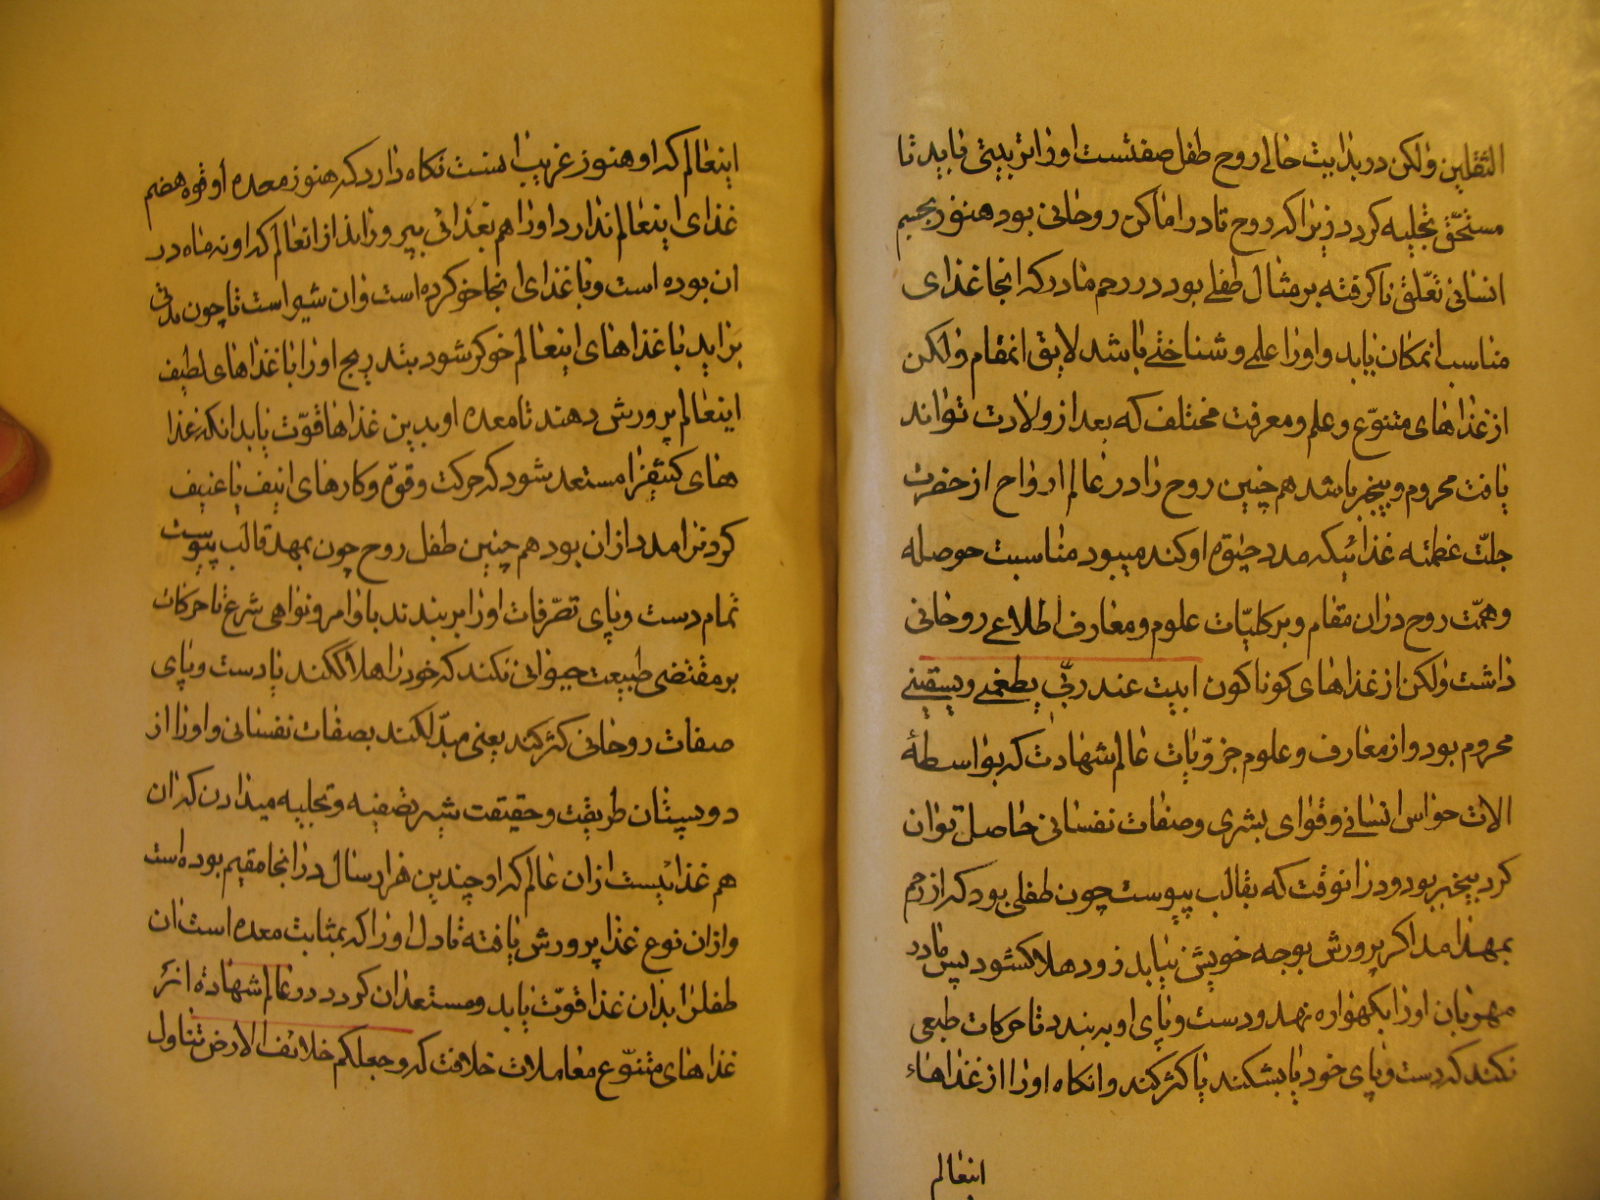 الثقلین ولکن در بدایت حالی روح طفل صفتست اورا تربیتی باید تا
مستحق تجلیه کردد زیرا که روح تا در اماکن روحانی بود هنوز بجسم
انسانی تعلق ناکرفته بر مثال طفلی بود در رحم مادر که انجا غذای
مناسب انمکان یابد واورا علمی وشناختی باشد لایق انمقام ولکن
از غذاهای متنوع وعلم ومعرفت مختلف که بعد از ولادت تواند
یافت محروم وبیخبر باشد هم چنین روح را در عالم ارواح از حضرت
جلت عظمته غذائیکه مدد حیوة او کند میبود مناسبت حوصله
وهمت روح دران مقام وبر کلیات علوم ومعارف اطلاعی روحانی
داشت ولکن از غذاهای کوناکون ابیت عند ربی یطعمنی ویسقینی
محروم بود واز معارف وعلوم جزویات عالم شهادت که بواسطهٔ
الات حواس انسانی وقوای بشری وصفات نفسانی حاصل توان
کرد بیخبر بود ودر انوقت که بقالب پیوست چون طفلی بود که از رحم
بمهد امد اکر پرورش بوجه خویش نیابد زود هلاک شود پس مادر
مهربان اورا بکهواره نهد ودست وپای او به بندد تا حرکات طبعی
نکند که دست وپای خود یا بشکند یا کژ کند وانکاه اورا از غذاهاء
اینعالم
اینعالم که او هنوز غریب است نکاه دارد که هنوز معده او قوه هضم
غذای اینعالم ندارد اورا هم بغذائی بپروراند از انعالم که او نه ماه در
ان بوده است وبا غذای انجا خو کرده است وان شیر است تا چون مدتی
براید با غذاهای اینعالم خوکر شود بتدریج اورا با غذاهای لطیف
اینعالم پرورش دهند تا معده او بدین غذاها قوت یابد انکه غذا
های کثیفرا مستعد شود که حرکت وقوة وکارهای
کردنرا مدد ازان بود هم چنین طفل روح چون بمهد قالب پیوست
تمام دست وپای تصرفات اورا بربندند باوامر ونواهی شرع تا حرکات
بر مقتضی طبیعت حیوانی نکند که خودرا هلاک کند یا دست وپای
صفات روحانی کژ کند یعنی مبدل کند بصفات نفسانی واورا از
دو پستان طریقت وحقیقت شیر تصفیه وتحلیه میدارن که ان
هم غذائیست ازان عالم که او چندین هزار سال در انجا مقیم بوده است
وازان نوع غذا پرورش یافته تا دل اورا که بمثابت معده است ان
طفلرا بدان غذا قوت یابد ومستعد ان کردد در عالم شهادة از
غذاهای متنوع معاملات خلافت که وجعلکم خلائف الارض تناول